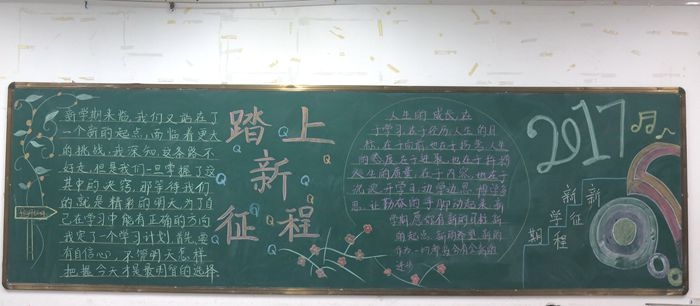 新学期来临,我们又站在了
一个新的起点,面临着更大
的挑战,我深知,这条路不
好走,但是我们一旦掌握了这
其中的决窍,那等待我们
的就是精彩的明天,为了自
己在学习中能有正确的方向
我定了一个学习计划,首先要
有自信心,不管明天怎样
把握今天才是最明智的选择
踏上
新
征程
人生的成长,在
于学习,在于经历,人生的目
标,在于向前,也在于拐弯,人生
的态度,在于进取,也在于
人生的质量,在于内容,也在于
沉淀,开学了,边学边思,博学多
思,让勤奋的手脚动起来,新
学期,愿你有新的目标,新
的起点,新的希望,新的
作为,一切都将会有全新的
进步
2017
新学期
新征程